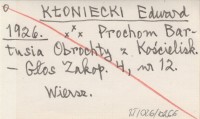 KŁONIECKI Edward
1926. xxx Prochom Bar-
tusia Obrochty z Kościelisk.
- Głos Zakop. 4, nr 12.
Wiersz.